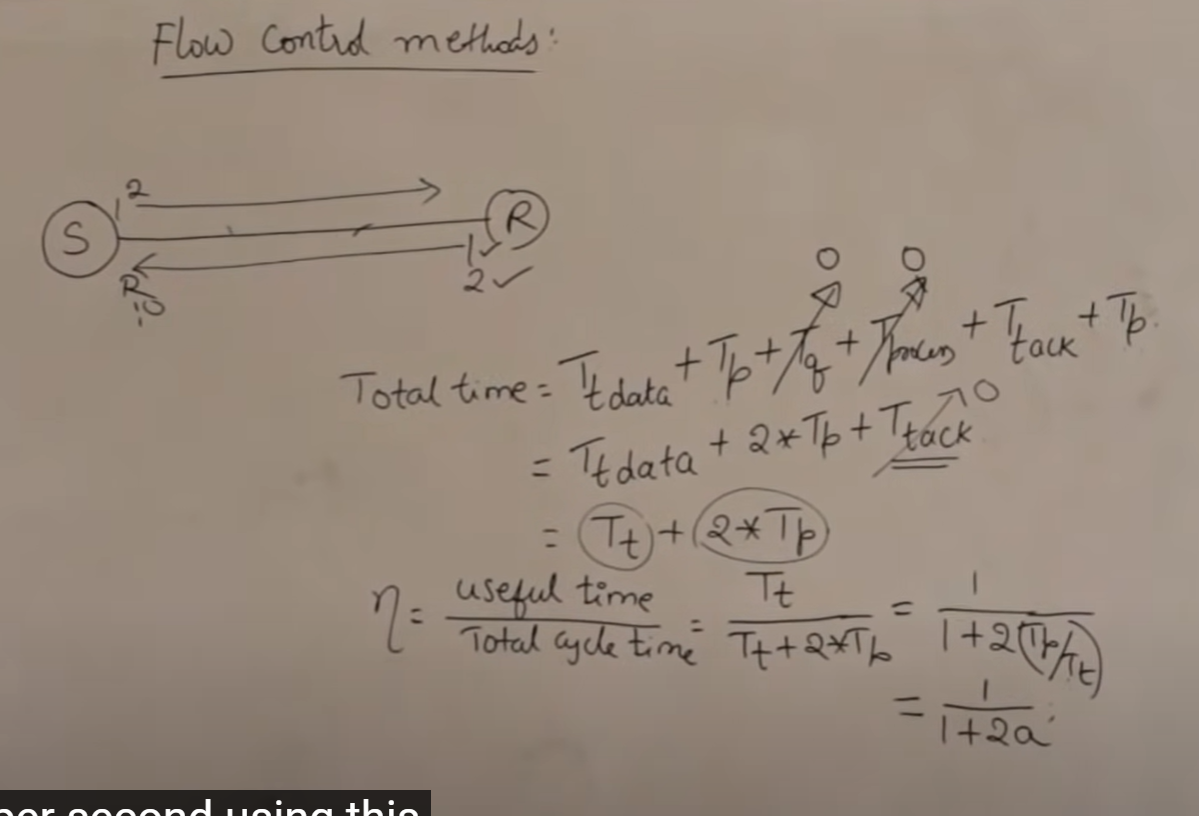 Flow Control methods:
2
1
S
R
1✓
2✓
R
:0
0 0
Total time = Tt data + Tp + Tq + Tprocess + Ttack + Tp.
0
= Tt data + 2*Tp + Ttack
= Tt + 2*Tp
η = useful time / Total cycle time = Tt / Tt+2*Tp = 1 / 1+2(Tp/Tt)
= 1 / 1+2a
per second using this